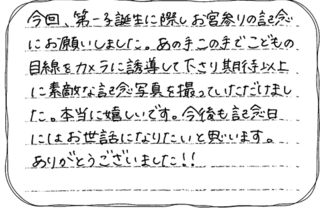 今回、第一子誕生に際しお宮参りの記念
にお願いしました。あの手この手でこどもの
目線をカメラに誘導して下さり期待以上
に素敵な記念写真を撮っていただけまし
た。本当に嬉しいです。今後も記念日
にはお世話になりたいと思います。
ありがとうございました!!